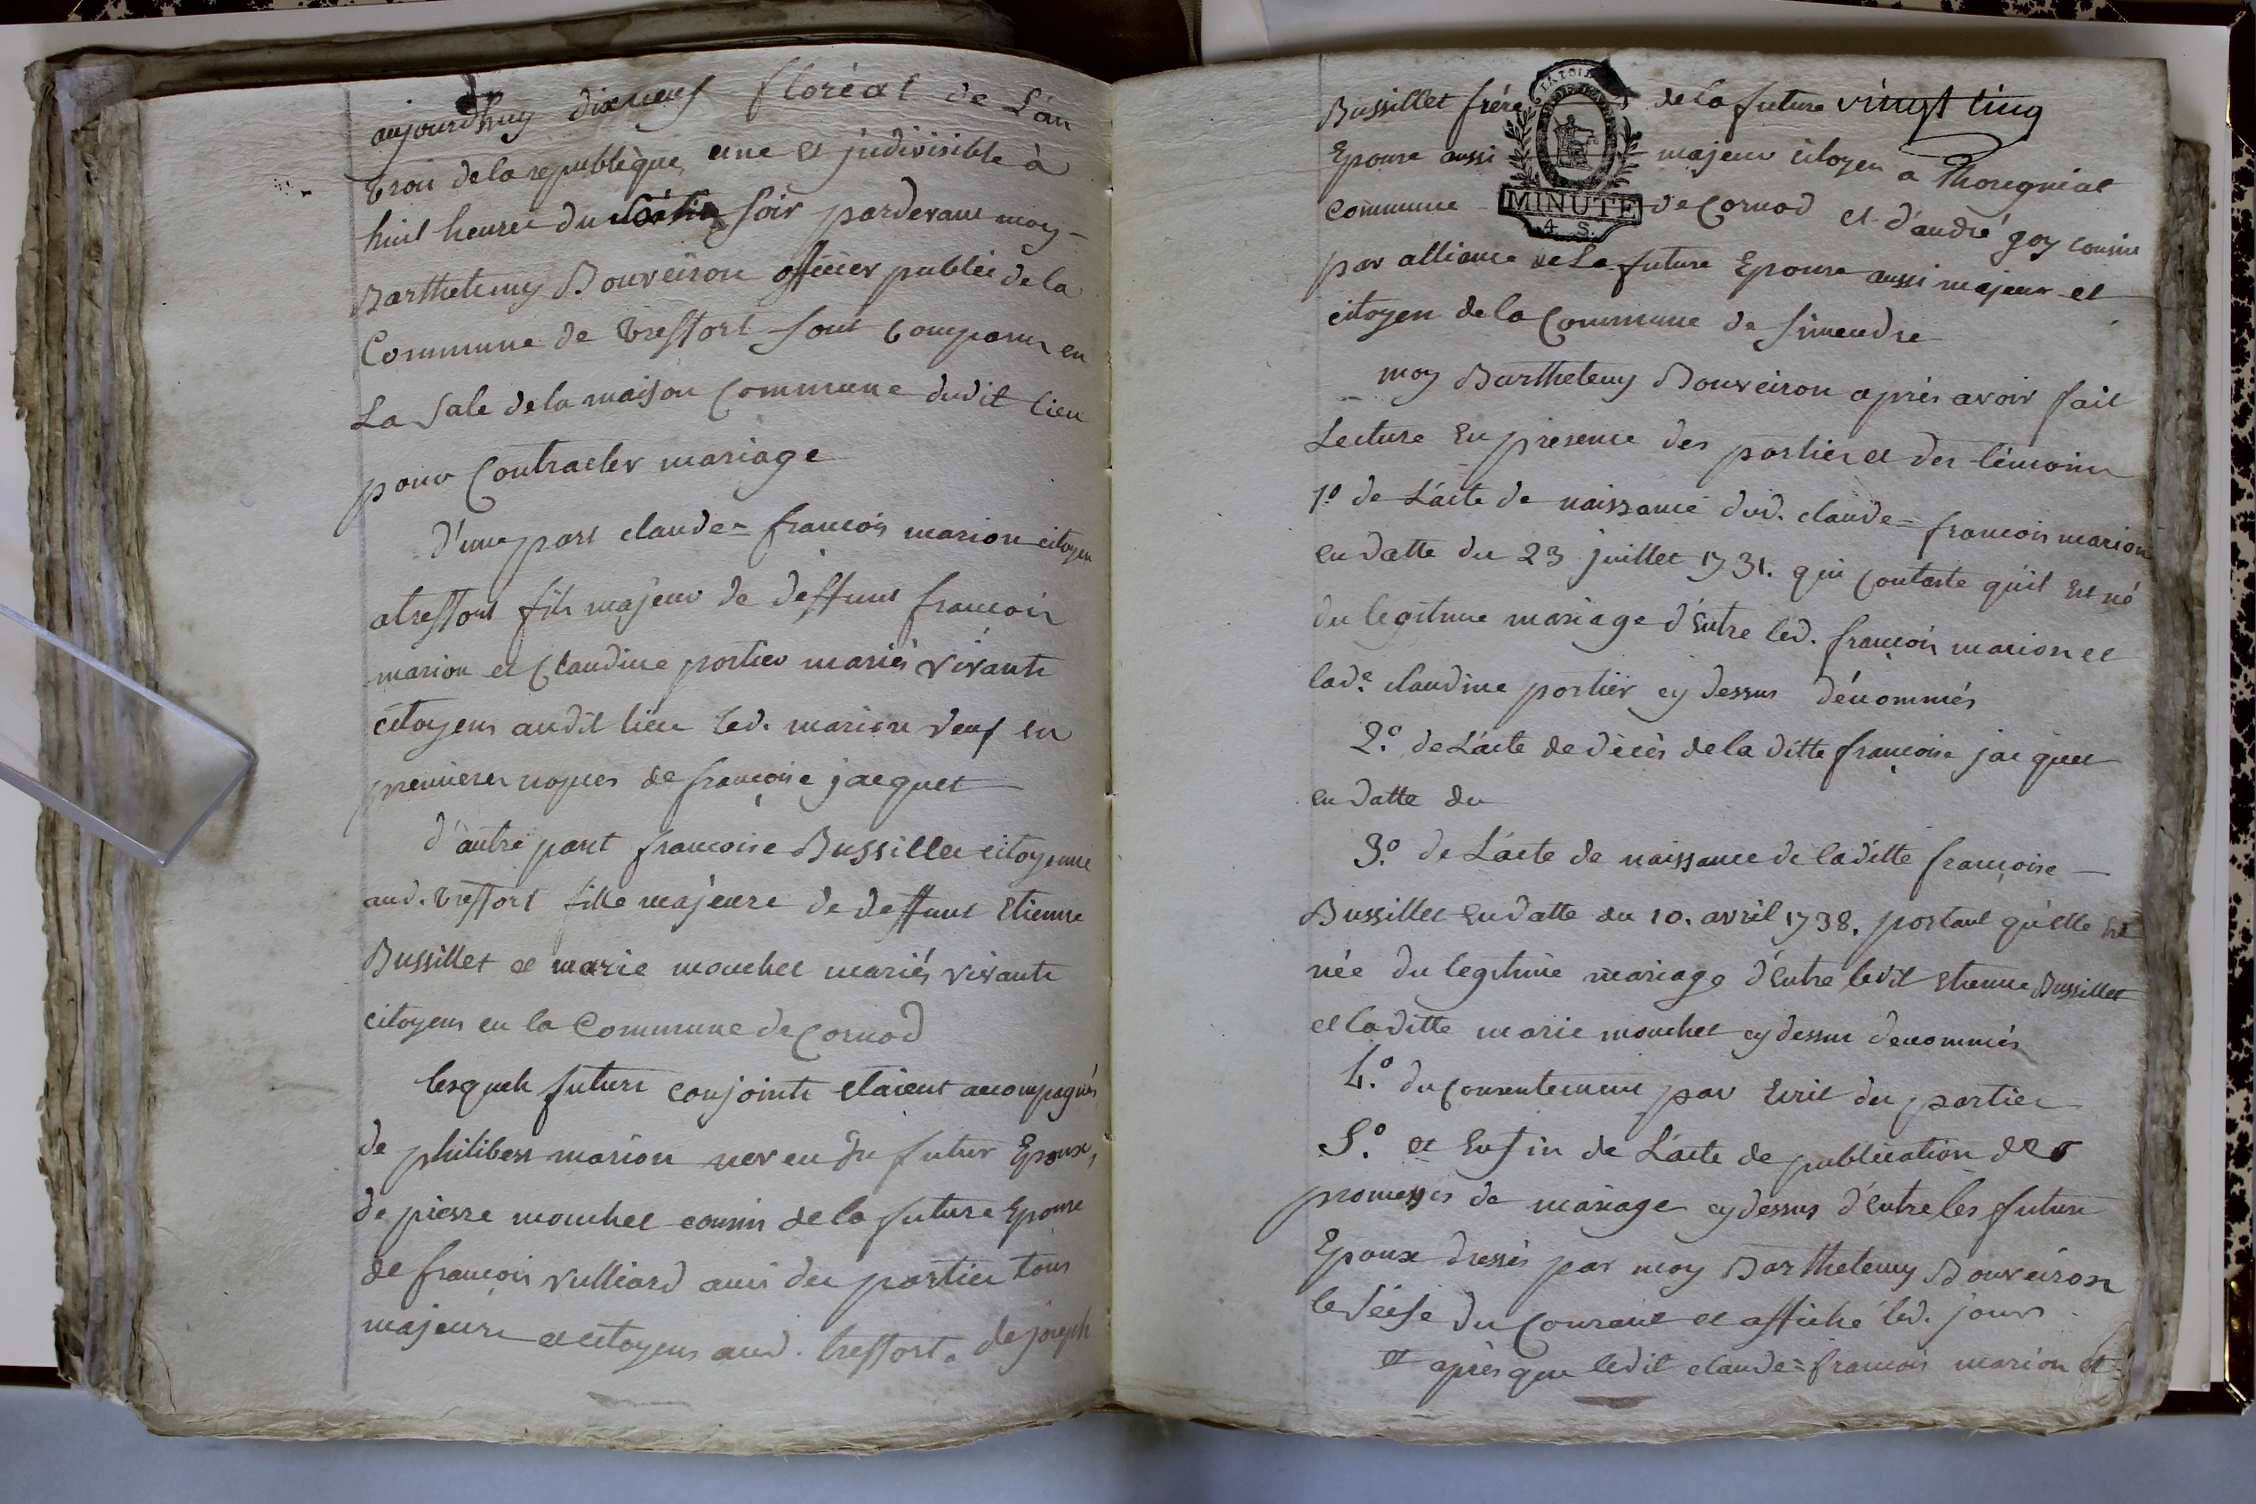 aujourdhuy dixneuf floréal de L'an
trois de la republèque une et jndivisible à
huit heures du soir pardevant moy
Barthelemy Bouveiron officier public de la
Commune de treffort sont comparus en
La sale de la maison Commune dudit lieu
pour Contracter mariage
d'une part claude= francois marion citoyen
a treffort fils majeur de deffunt francois
marion et Claudine portier mariés vivants
citoyens audit lieu led. marion veuf en
premieres nopces de françoise jacquet
d'autre part francoise Bussillet citoyenne
aud. treffort fille majeure de deffunt Etienne
Bussillet et marie mouchet mariés vivants
citoyens en la Commune de Cornod
lesquels futurs conjoints etaient accompagnés
de philibert marion neveu du futur Epoux,
de pierre mouchet cousin de la future Epouse
de françois vulliard ami des parties tous
majeurs et citoyens aud. treffort. de joseph
Bussillet frère de la future vingt cinq
Epouse aussi majeur citoyen a Thoregniat
commune de Cornod et d'andré goy cousin
par alliance de La future Epouse aussi majeur et
citoyen de la Commune de simendre
MINUTE
4 S.
moy Barthelemy Bouveiron après avoir fait
Lecture en presence des parties et des témoins
1.º de L'acte de naissance dud. claude= francois marion
en datte du 23 juillet 1731. qui contaste qu'il est né
du legitime mariage d'Entre led. françois marion et
lad.e claudine portier cy dessus dénommés
2.º de L'acte de décès de la ditte françoise jacquet
en datte du
3.º de L'acte de naissance de laditte françoise
Bussillet en datte du 10. avril 1738. portant qu'elle est
née du legitime mariage d'entre ledit Etienne Bussillet
et laditte marie mouchet cy dessus denommés
4.º du consentement par Ecrit des parties
5.º et Enfin de L'acte de publication des
promesses de mariage cy dessus d'entre les futurs
Epoux dressés par moy Barthelemy Bouveiron
le seise du Courant et affiché led. jour
et après que ledit claude= francois marion et